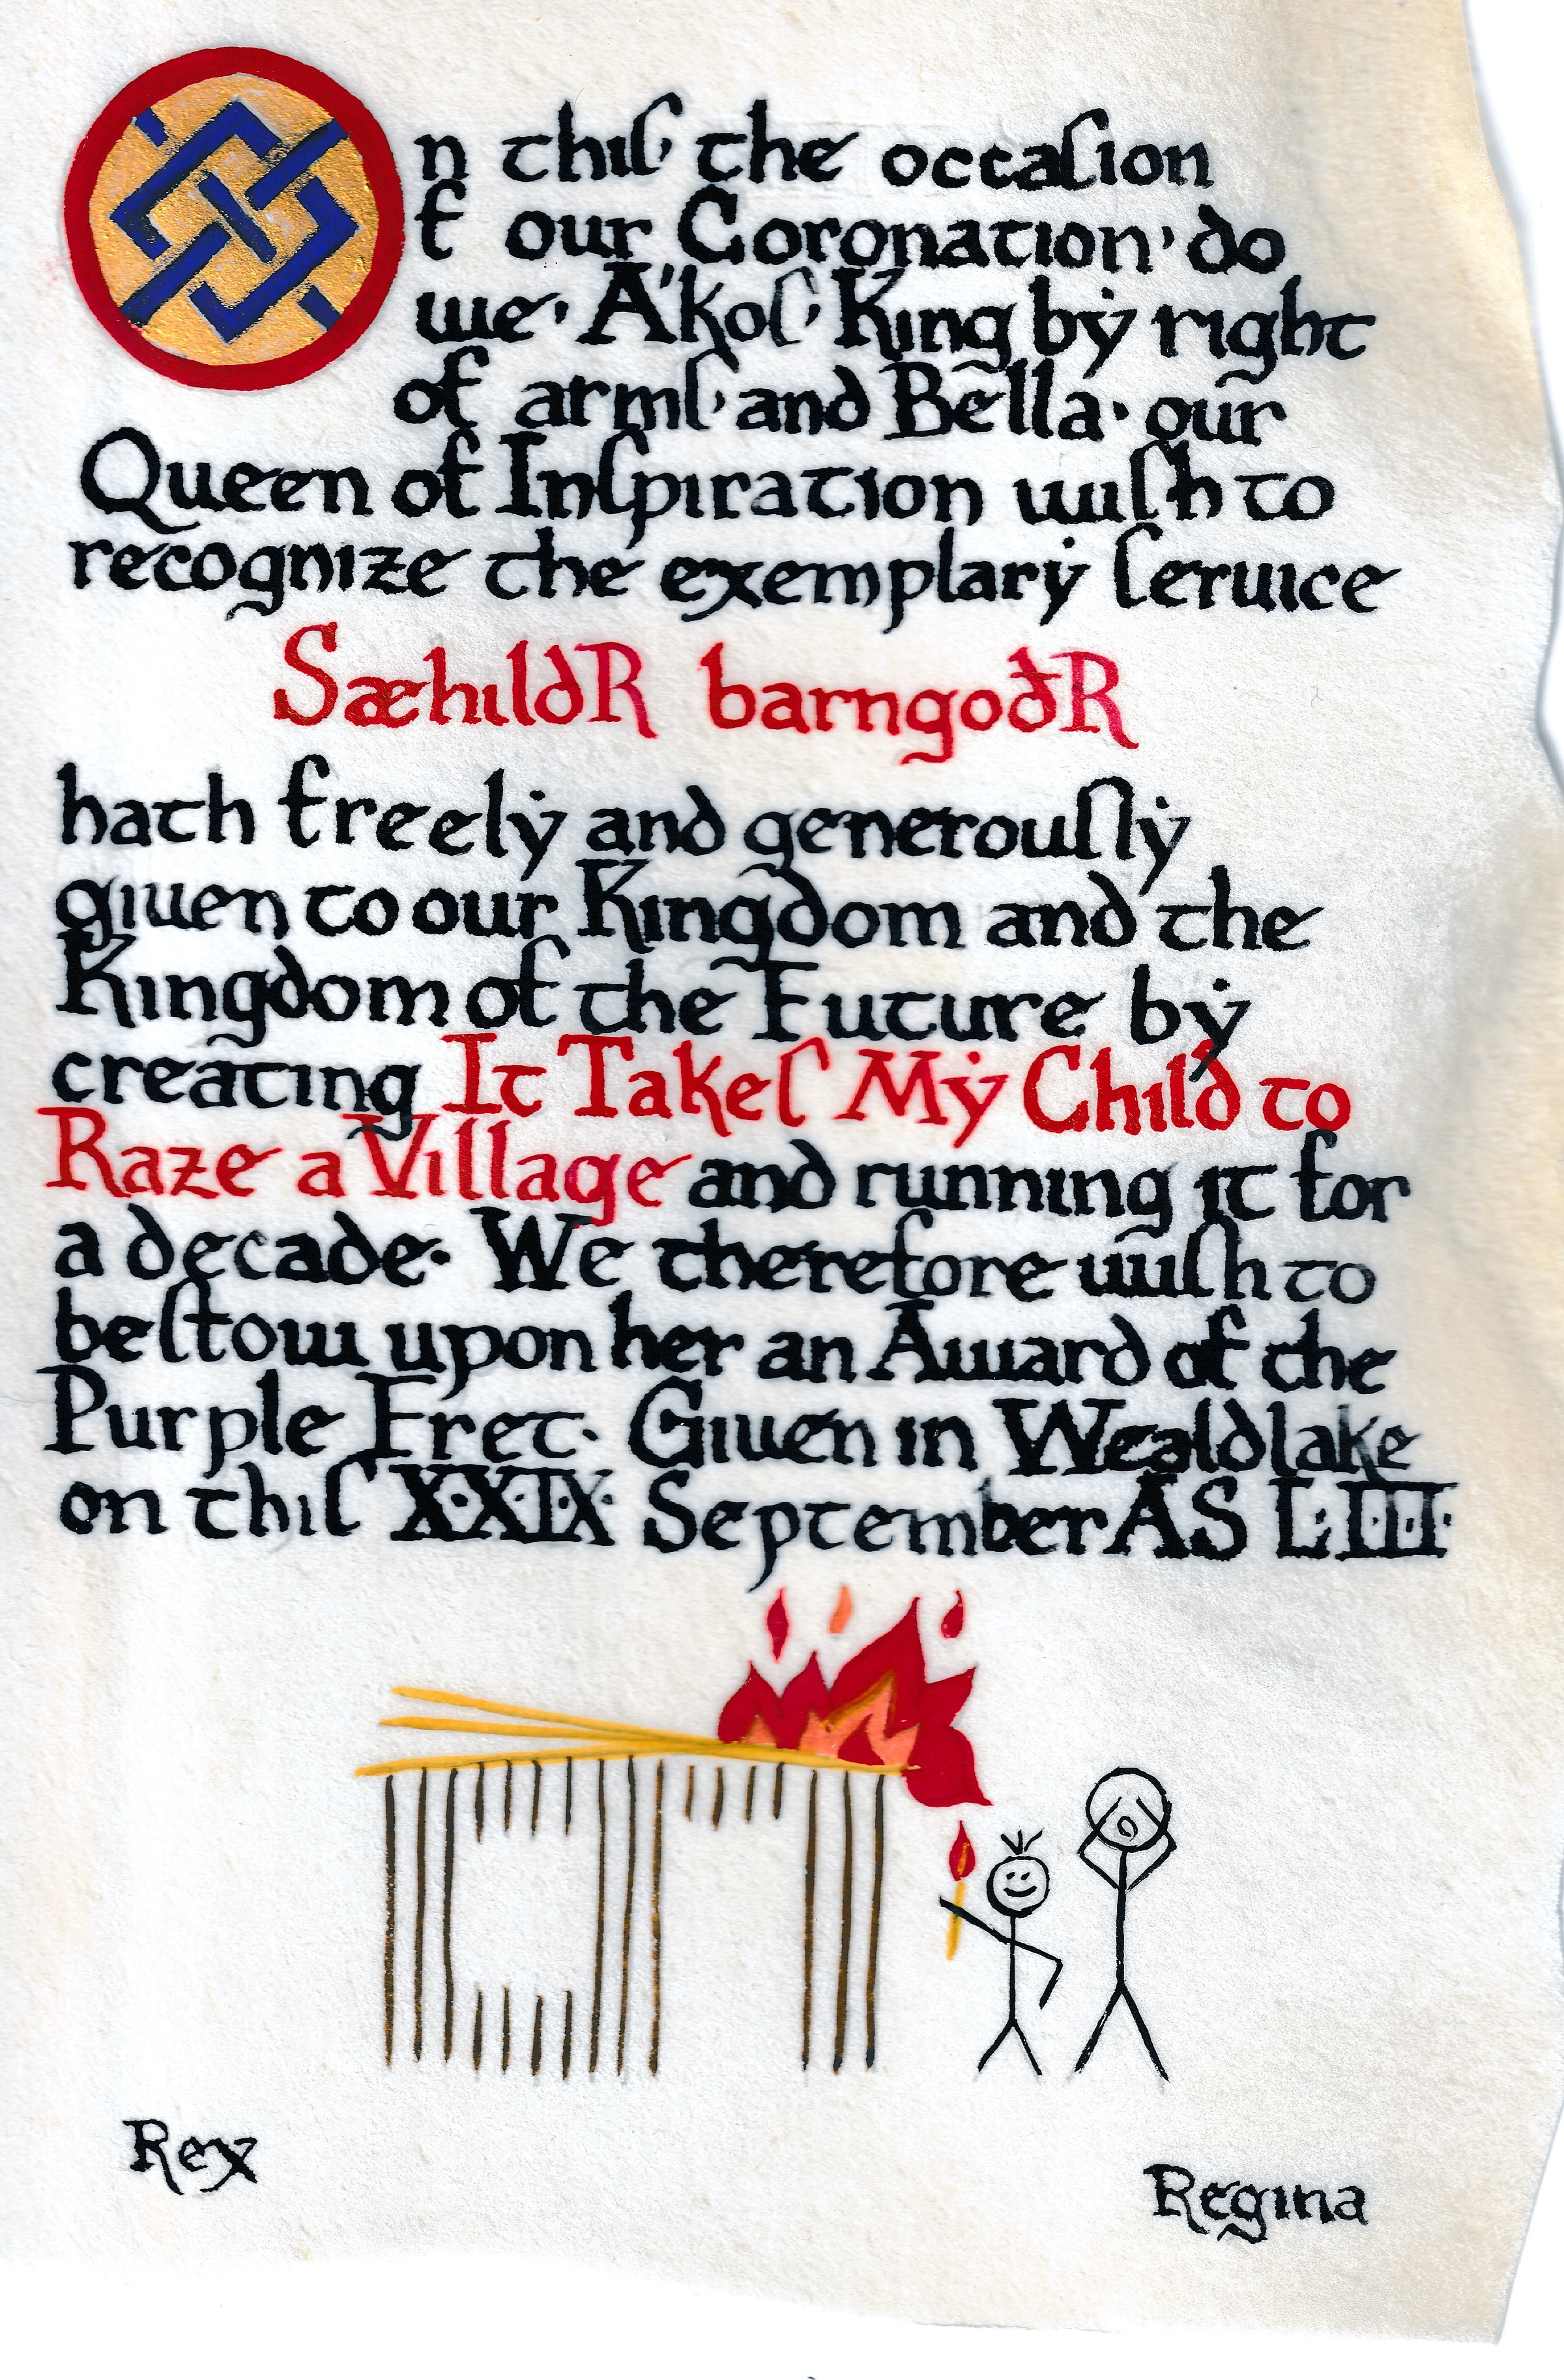 On thiſ, the occaſion
f our Coronation, do
we, A'koſ, King by right
of armſ, and Bella, our
Queen of Inſpiration wiſh to
recognize the exemplary ſeruice
SæhildR barngoðR
hath freely and generouſly
giuen to our Kingdom and the
Kingdom of the Future by
creating It Takeſ My Child to
Raze a Village and running it for
a decade. We therefore wiſh to
beſtow upon her an Award of the
Purple Fret. Giuen in Wealdlake
on thiſ X·X·I·X· September AS L·I·I·I·
Rex
Regina